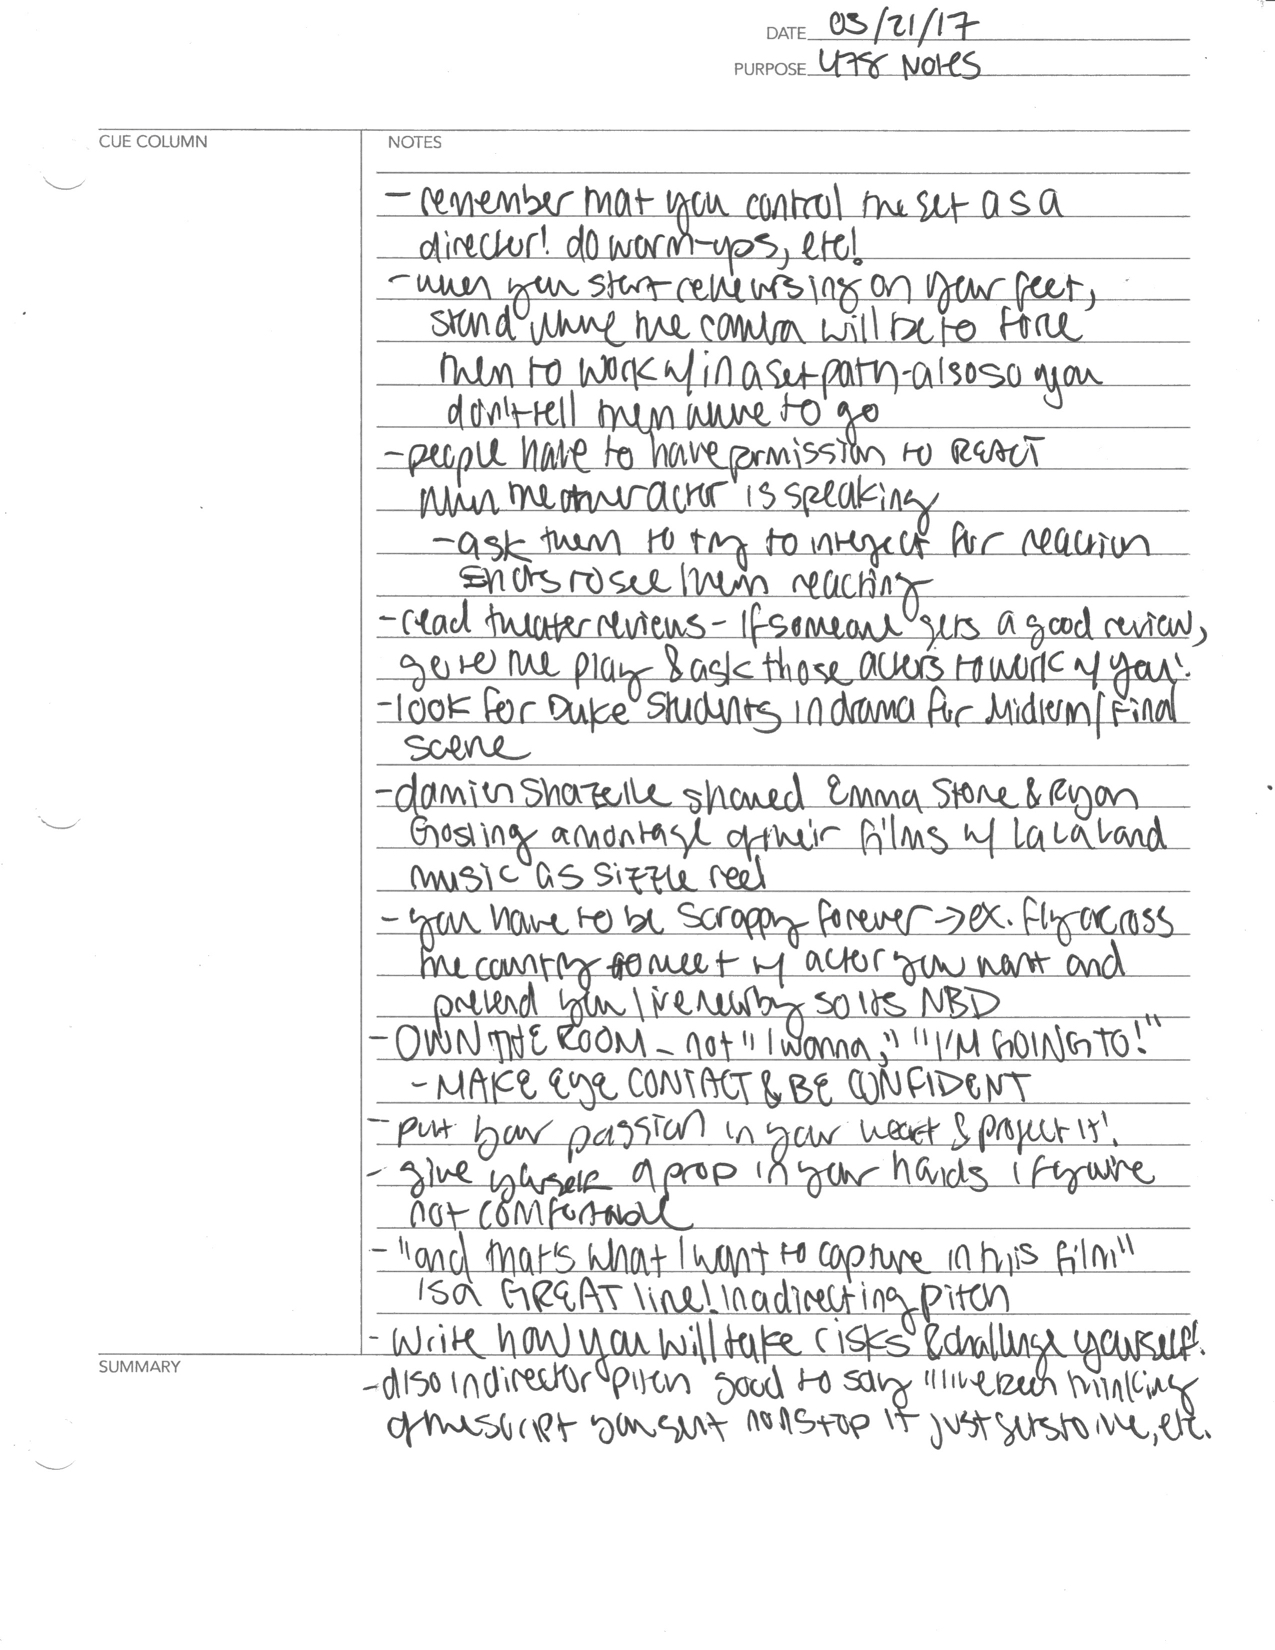 DATE 03/21/17
PURPOSE 478 Notes
CUE COLUMN
NOTES
- remember that you control the set as a
director! do warm-ups, etc!
- when you start rehearsing on your feet,
stand where the camera will be to force
them to work w/in a set path - also so you
don't tell them where to go
- people have to have permission to REACT
when the other actor is speaking
- ask them to try to interject for reaction
shots to see them reacting
- read theater reviews - if someone gets a good review,
go to the play & ask those actors to work w/ you!
- look for Duke students in drama for Midterm/Final
scene
- damien Shazelle showed Emma Stone & Ryan
Gosling a montage of their films w/ La La Land
music as sizzle reel
- you have to be scrappy forever → ex. fly across
the country to meet w/ actor you want and
pretend you live nearby so its NBD
- OWN THE ROOM - not "I wanna," "I'M GOING TO!"
- MAKE EYE CONTACT & BE CONFIDENT
- put your passion in your heart & project it!
- give yourself a prop in your hands if you're
not comfortable
- "and that's what I want to capture in this film"
is a GREAT line! in a directing pitch
- write how you will take risks & challenge yourself!
SUMMARY
- also in director pitch good to say "I've been thinking
of the script you sent nonstop it just gets to me, etc.